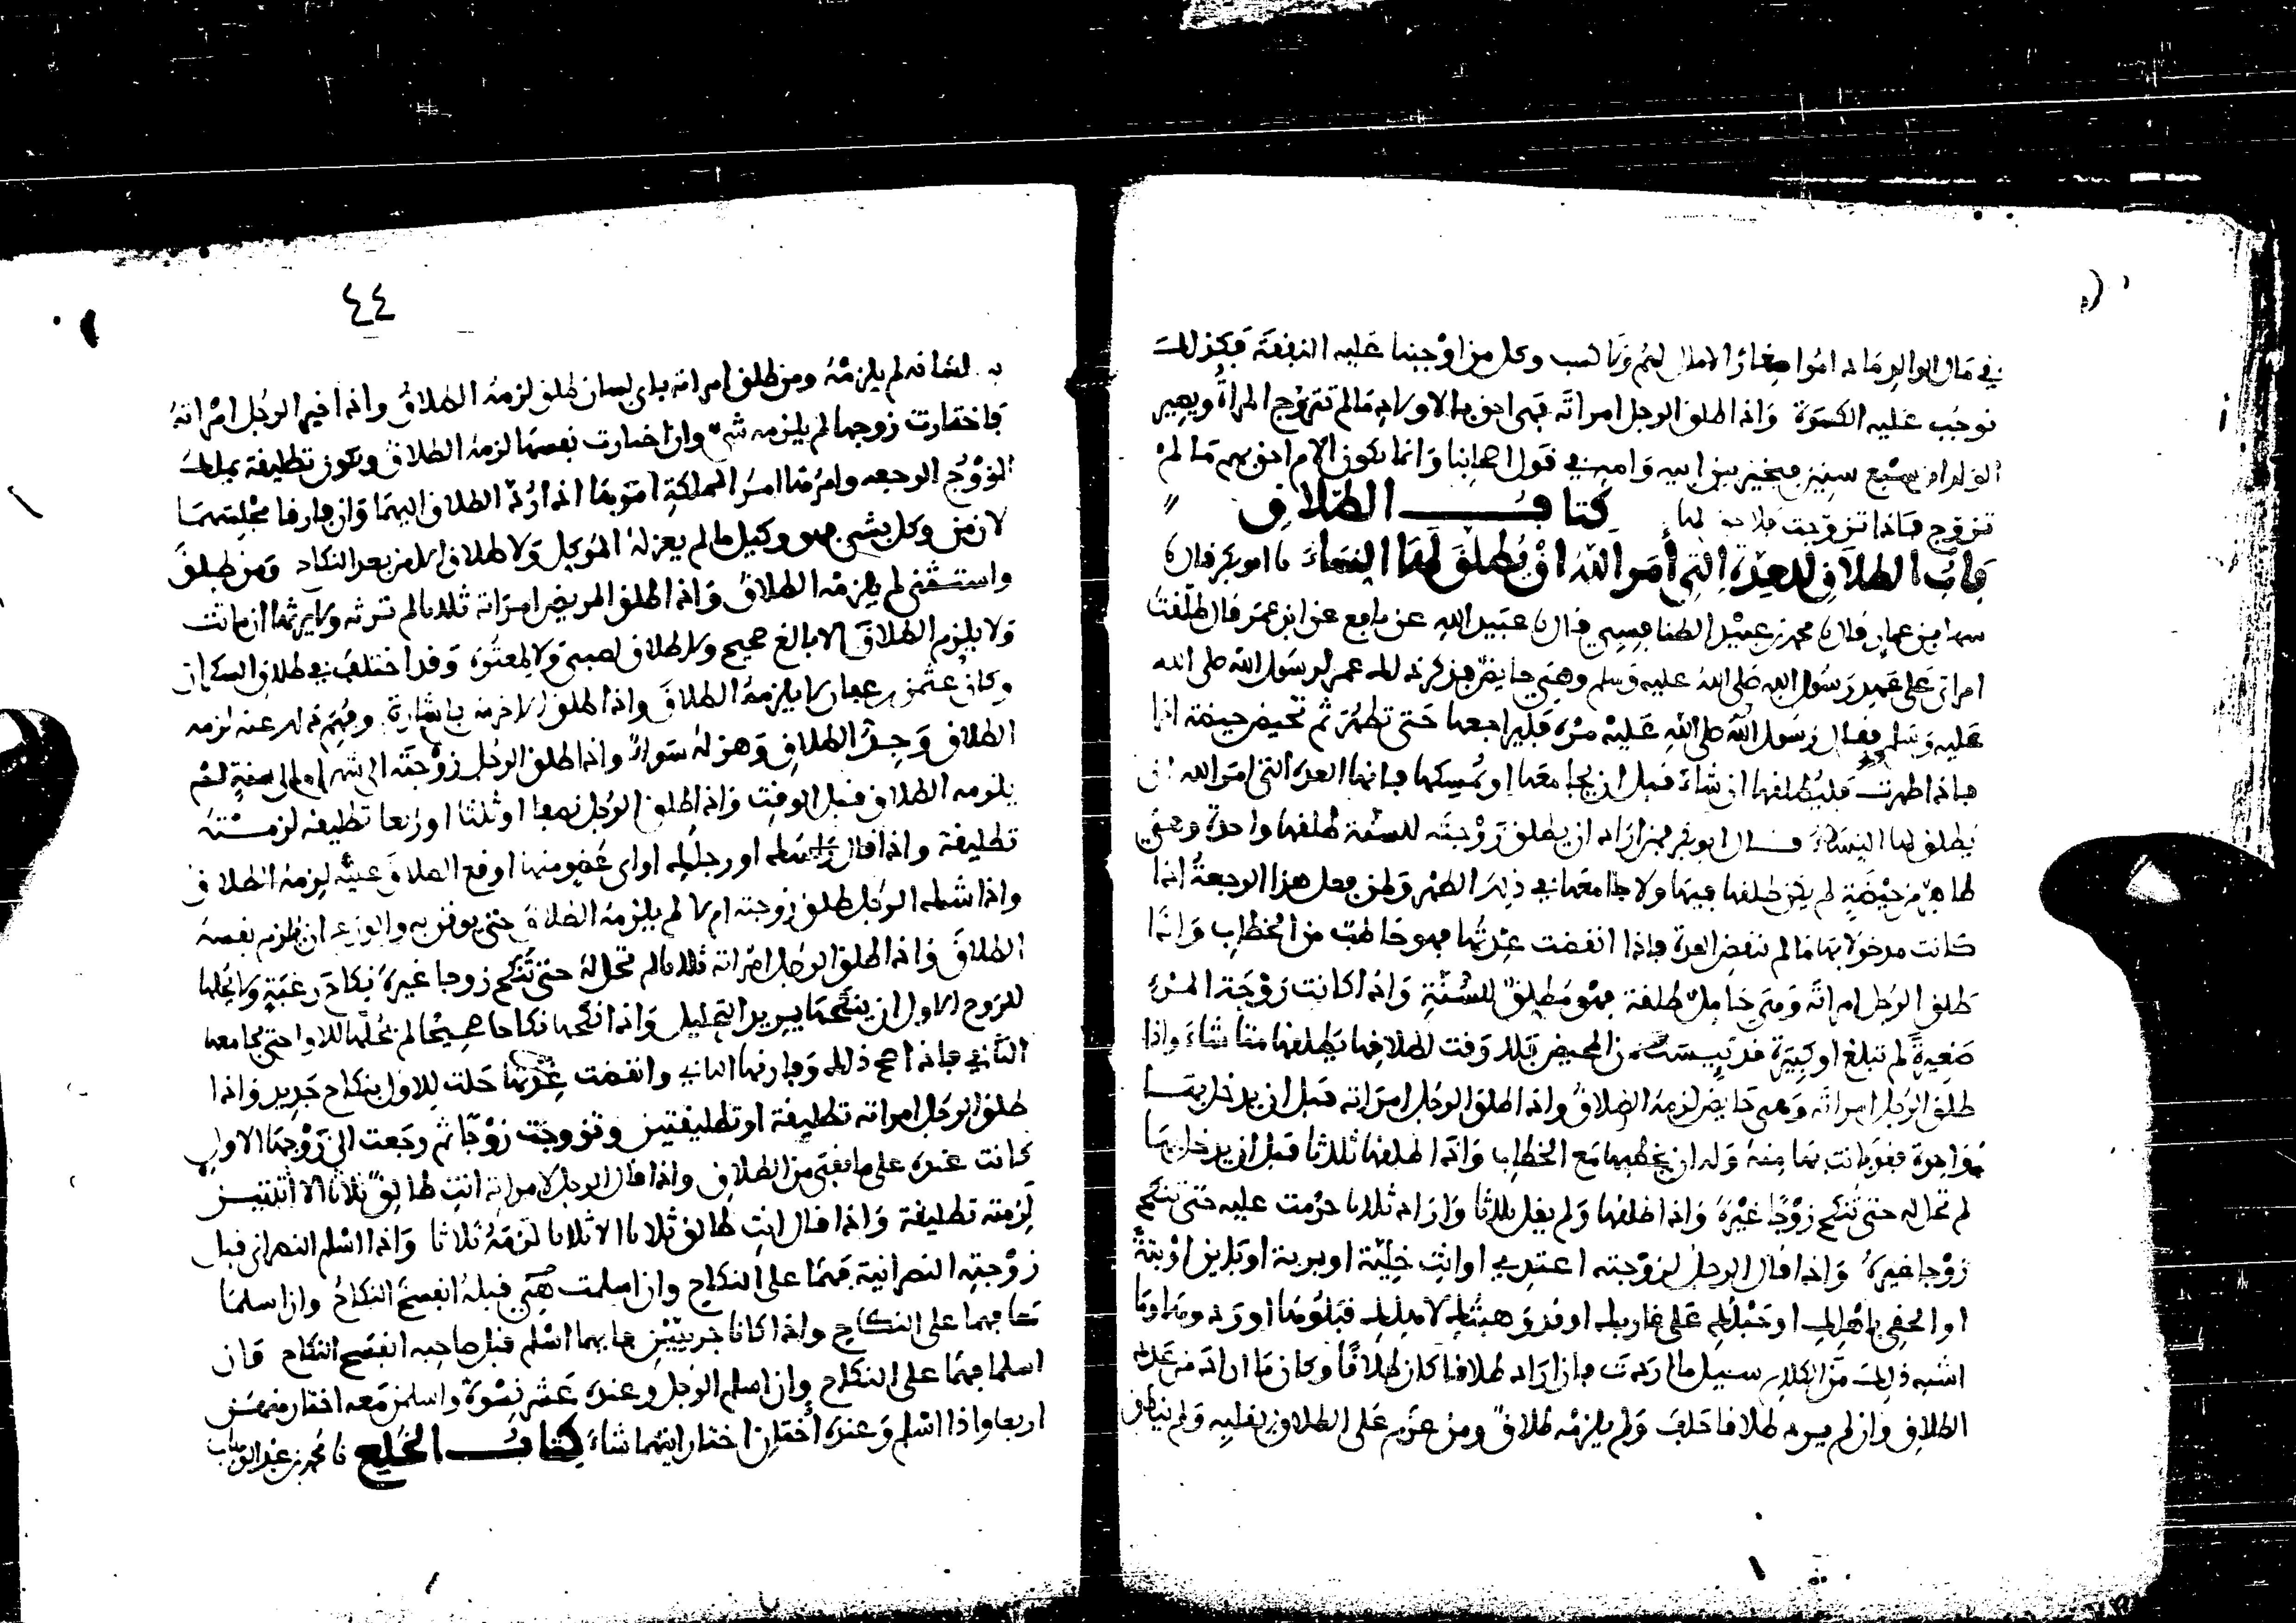 في مال الوالد ما داموا صغارا لا مال لهم ولا كسب وكل من اوجبنا عليه النفقة فكذلك
نوجب عليه الكسوة واذا طلق الرجل امراته فهي احق بالاولاد ما لم تتزوج المراة ويصير
الولد ابن سبع سنين فيخير بين ابيه وامه في قول اصحابنا وانما يكون الام احق بهم ما لم
تزوج فاذا تزوجت فلا حق لها كتاب الطلاق
باب الطلاق للعدة التي أمر الله ان يطلق لها النساء نا ابو بكر قال نا
سهل بن عمار قال نا محمد بن عبيد الطنافسي قال نا عبيد الله عن نافع عن ابن عمر قال طلقت
امراتي على عهد رسول الله صلى الله عليه وسلم وهي حايض فذكر ذلك عمر لرسول الله صلى الله
عليه وسلم فقال رسول الله صلى الله عليه مره فليراجعها حتى تطهر ثم تحيض حيضة اخرى
فاذا طهرت فليطلقها ان شاء قبل ان يجامعها او يمسكها فانها العدة التي امر الله ان
يطلق لها النساء قال ابو بكر فمن اراد ان يطلق زوجته للسنة طلقها واحدة وهي
طاهر من حيضة لم يكن طلقها فيها ولا جامعها في ذلك الطهر ولمن فعل هذا الرجعة اذا
كانت مدخولا بها ما لم تنقض العدة فاذا انقضت عدتها فهو خاطب من الخطاب واذا
طلق الرجل امراته وهي حامل طلقة فهو مطلق للسنة واذا كانت زوجة المرء
صغيرة لم تبلغ او كبيرة قد يئست من المحيض فلا وقت لطلاقها يطلقها متا شاء واذا
طلق الرجل امراته وهي حايض لزمه الطلاق واذا طلق الرجل امراته قبل ان يدخل بها
واحدة فقد بانت بها منه وله ان يخطبها مع الخطاب واذا طلقها ثلاثا قبل ان يدخل بها
لم تحل له حتى تنكح زوجا غيره واذا طلقها ولم يقل ثلاثا واراد ثلاثا حرمت عليه حتى تنكح
زوجا غيره واذا قال الرجل لزوجته اعتدي او انت خلية او برية او باين او بتة
او الحقي باهلك او حبلك على غاربك او قد وهبتك لاهلك قبلوها او ردوها وما
اشبه ذلك من الكلام سيل ما اردت فان اراد طلاقا كان طلاقا وكان ما اراد من عدد
الطلاق وان لم يرد طلاقا حلف ولم يلزمه طلاق ومن عزم على الطلاق بقلبه ولم
٤٤
به لسانه لم يلزمه ومن طلق امراته باي لسان طلق لزمه الطلاق واذا خير الرجل امراته
فاختارت زوجها لم يلزمه شيء وان اختارت نفسها لزمه الطلاق ويكون تطليقة يملك
الزوج الرجعه وامرها امر المملكة اذا رد الطلاق اليهما وان فارقا مجلسهما
لان من وكل بشي فهو وكيل ما لم يعزله الموكل ولا طلاق الا من بعد النكاح ومن طلق
واستثنى لم يلزمه الطلاق واذا طلق المريض امراته ثلاثا لم ترثه ولا يرثها ان ماتت
ولا يلزم الطلاق الا بالغ صحيح ولا طلاق لصبي ولا لمعتوه وقد اختلف في طلاق السكران
وكان عثمن بن عفان لا يلزمه الطلاق واذا طلق الاخرس باشارة وفهم ذلك عنه لزمه
الطلاق وجد الطلاق وهزله سواء واذا طلق الرجل زوجته الى شهر او الى سنة لم
يلزمه الطلاق قبل الوقت واذا طلق الرجل نصفا او ثلثا او ربعا تطليقة لزمته
تطليقة واذا قال راسك او رجلك او اي عضو منها اوقع الطلاق عليه لزمه الطلاق
واذا شك الرجل طلق زوجته ام لا لم يلزمه الطلاق حتى يوقن به والورع ان يلزم نفسه
الطلاق واذا طلق الرجل امراته ثلاثا لم تحل له حتى تنكح زوجا غيره نكاح رغبة ولا يحلها
للزوج الاول ان ينكحها يريد التحليل واذا نكحها نكاحا صحيحا لم يحلها للاول حتى يجامعها
الثاني فاذا صح ذلك وفارقها الثاني وانقضت عدتها حلت للاول بنكاح جديد واذا
طلق الرجل امراته تطليقة او تطليقتين وتزوجت زوجا ثم رجعت الى زوجها الاول
كانت عنده على ما بقي من الطلاق واذا قال الرجل لامراته انت طالق ثلاثا الا اثنتين
لزمته تطليقة واذا قال انت طالق ثلاثا الا ثلاثا لزمه ثلاثا واذا اسلم النصراني قبل
زوجته النصرانية فهما على النكاح وان اسلمت هي قبله انفسخ النكاح وان اسلما
معا فهما على النكاح واذا كانا حربيين فايهما اسلم قبل صاحبه انفسخ النكاح فان
اسلما فهما على النكاح وان اسلم الرجل وعنده عشر نسوة واسلمن معه اختار منهن
اربعا واذا اسلم وعنده أختان اختار ايتهما شاء كتاب الخلع نا محمد بن عبد الوهاب